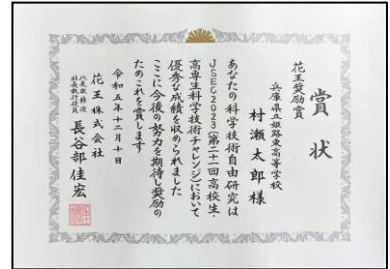 賞状
花王奨励賞
兵庫県立姫路東高等学校
村瀬太郎様
あなたの科学技術自由研究は
JSEC2023(第二十一回高校生・
高専生科学技術チャレンジ)において
優秀な成績を収められました
ここに今後の努力を期待し奨励の
ためこれを賞します
令和五年十二月十日
花王株式会社
代表取締役
社長執行役員
長谷部佳宏